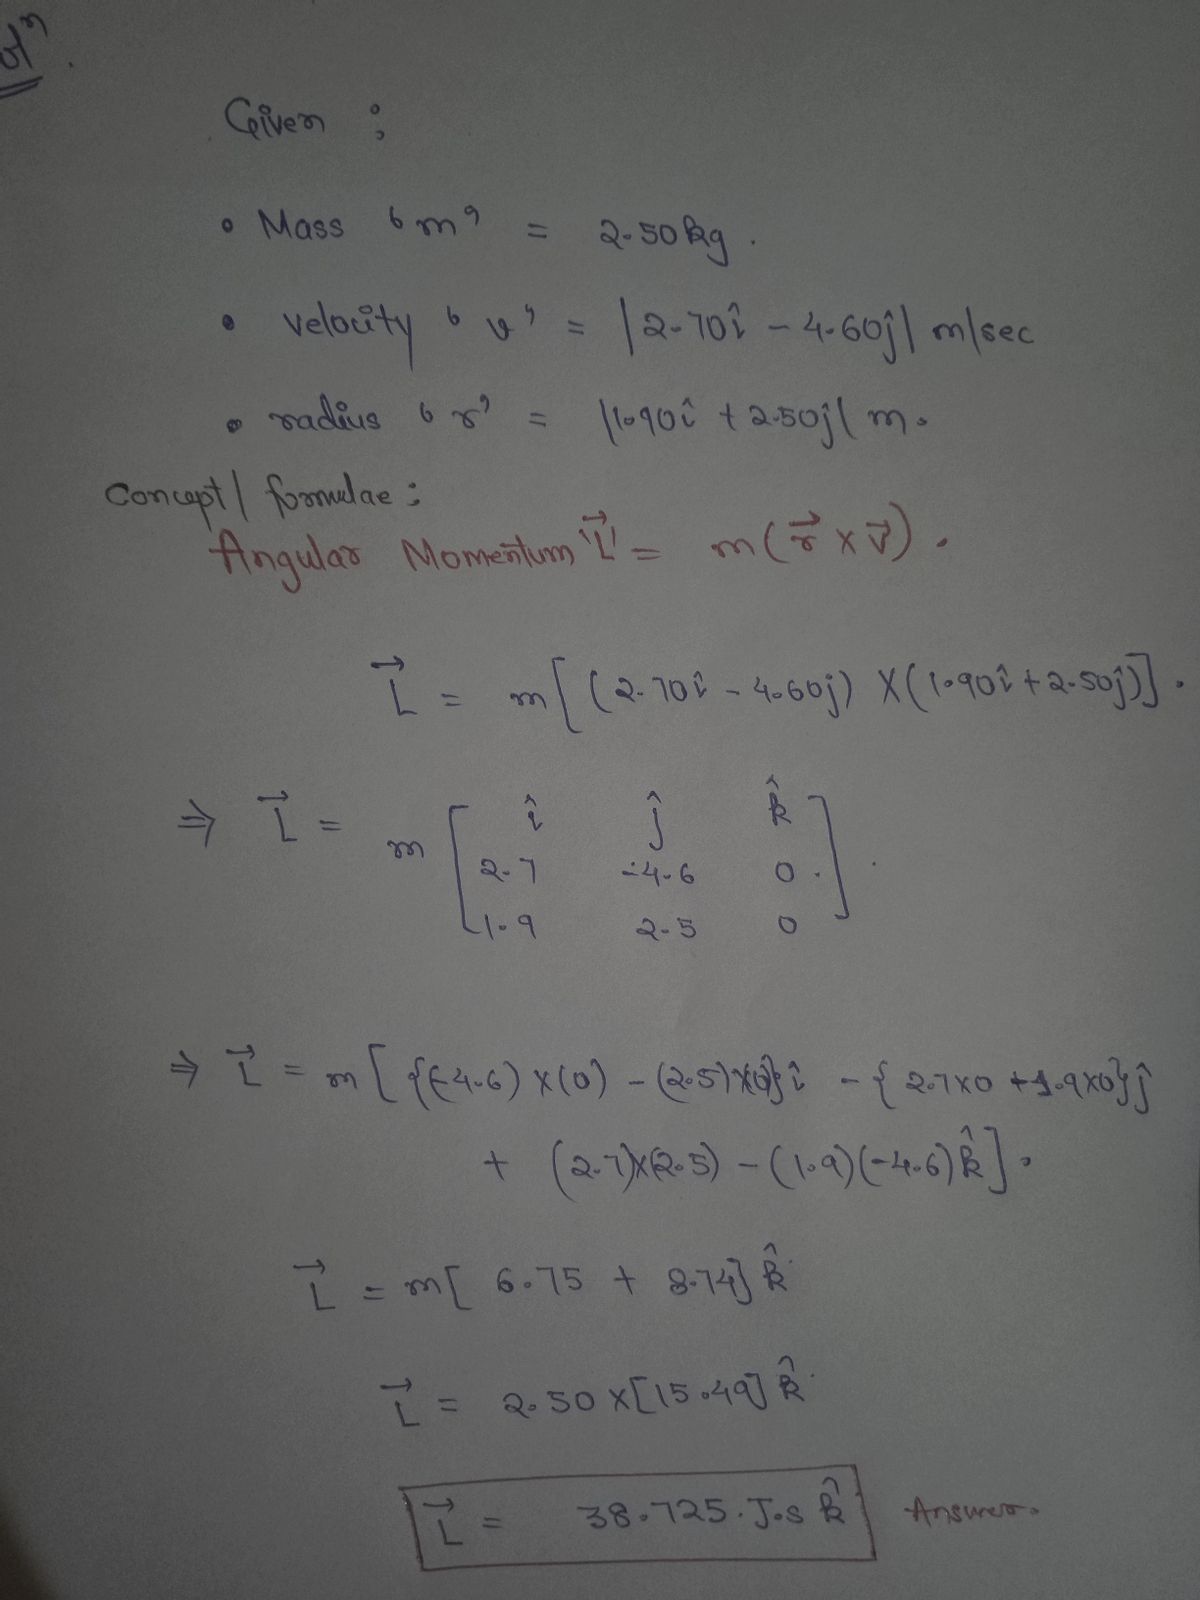 Given :
• Mass 'm' = 2.50 kg.
• velocity 'v' = |2.70î - 4.60ĵ| m/sec
• radius 'r' = |1.90î + 2.50ĵ| m.
Concept/ formulae :
Angular Momentum 'L⃗' = m(r⃗ × v⃗).
L⃗ = m[(2.70î - 4.60ĵ) × (1.90î + 2.50ĵ)].
⇒ L⃗ = m [ î ĵ k̂
2.7 -4.6 0
1.9 2.5 0 ].
⇒ L⃗ = m[{(-4.6)×(0) - (2.5)×0}î - {2.7×0 + 1.9×0}ĵ
+ (2.7)×(2.5) - (1.9)(-4.6)k̂].
L⃗ = m[6.75 + 8.74] k̂
L⃗ = 2.50 × [15.49] k̂
L⃗ = 38.725 J.s k̂ Answer.